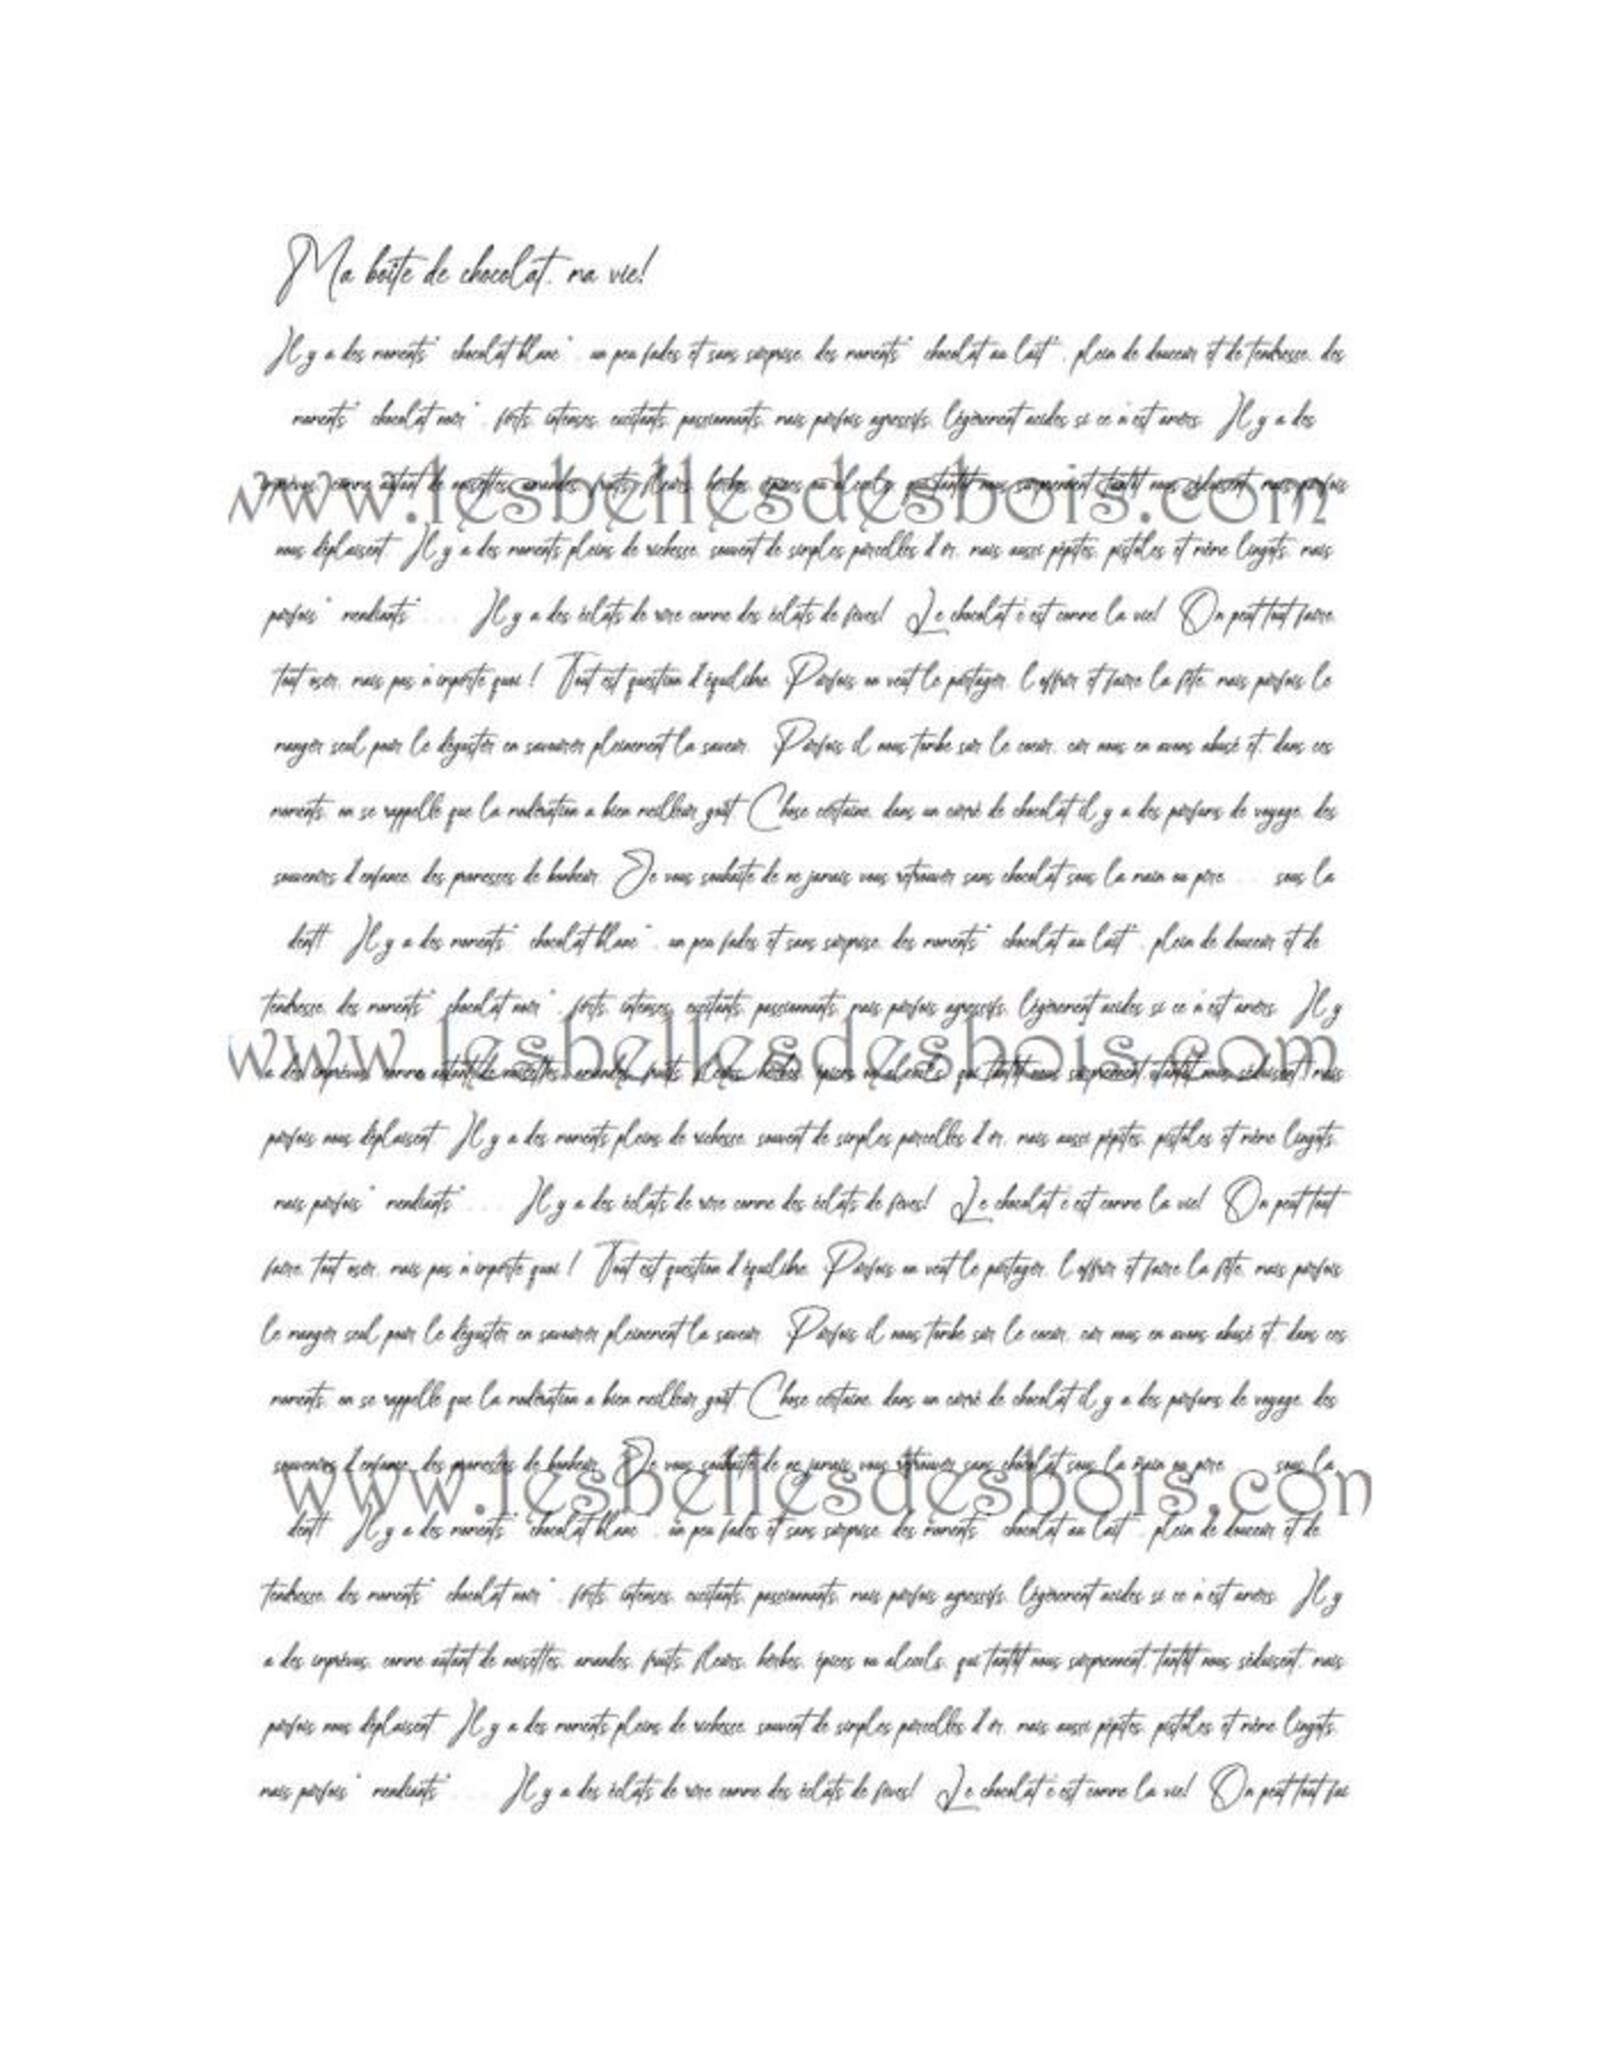 Ma boîte de chocolat, ma vie!
Il y a des moments" chocolat blanc", un peu fades et sans surprise, des moments" chocolat au lait", plein de douceur et de tendresse, des
moments" chocolat noir", forts, intenses, excitants, passionnants, mais parfois agressifs, légèrement acides si ce n'est amers. Il y a des
imprévus, comme autant de noisettes, amandes, fruits, fleurs, herbes, épices ou alcools, qui tantôt nous surprennent, tantôt nous séduisent, mais parfois
www.lesbellesdesbois.com
nous déplaisent. Il y a des moments pleins de richesse, souvent de simples parcelles d'or, mais aussi pépites, pistoles et même lingots, mais
parfois" mendiants"... Il y a des éclats de rire comme des éclats de fèves! Le chocolat c'est comme la vie! On peut tout faire,
tout oser, mais pas n'importe quoi ! Tout est question d'équilibre. Parfois on veut le partager, l'offrir et faire la fête, mais parfois le
manger seul pour le déguster en savourer pleinement la saveur. Parfois il nous tombe sur le coeur, car nous en avons abusé et, dans ces
moments, on se rappelle que la modération a bien meilleur goût. Chose certaine, dans un carré de chocolat il y a des parfums de voyage, des
souvenirs d'enfance, des promesses de bonheur. Je vous souhaite de ne jamais vous retrouver sans chocolat sous la main ou pire... sous la
dent! Il y a des moments" chocolat blanc", un peu fades et sans surprise, des moments" chocolat au lait", plein de douceur et de
tendresse, des moments" chocolat noir", forts, intenses, excitants, passionnants, mais parfois agressifs, légèrement acides si ce n'est amers. Il y
www.lesbellesdesbois.com
a des imprévus, comme autant de noisettes, amandes, fruits, fleurs, herbes, épices ou alcools, qui tantôt nous surprennent, tantôt nous séduisent, mais
parfois nous déplaisent. Il y a des moments pleins de richesse, souvent de simples parcelles d'or, mais aussi pépites, pistoles et même lingots,
mais parfois" mendiants"... Il y a des éclats de rire comme des éclats de fèves! Le chocolat c'est comme la vie! On peut tout
faire, tout oser, mais pas n'importe quoi ! Tout est question d'équilibre. Parfois on veut le partager, l'offrir et faire la fête, mais parfois
le manger seul pour le déguster en savourer pleinement la saveur. Parfois il nous tombe sur le coeur, car nous en avons abusé et, dans ces
moments, on se rappelle que la modération a bien meilleur goût. Chose certaine, dans un carré de chocolat il y a des parfums de voyage, des
souvenirs d'enfance, des promesses de bonheur. Je vous souhaite de ne jamais vous retrouver sans chocolat sous la main ou pire... sous la
www.lesbellesdesbois.con
dent! Il y a des moments" chocolat blanc", un peu fades et sans surprise, des moments" chocolat au lait", plein de douceur et de
tendresse, des moments" chocolat noir", forts, intenses, excitants, passionnants, mais parfois agressifs, légèrement acides si ce n'est amers. Il y
a des imprévus, comme autant de noisettes, amandes, fruits, fleurs, herbes, épices ou alcools, qui tantôt nous surprennent, tantôt nous séduisent, mais
parfois nous déplaisent. Il y a des moments pleins de richesse, souvent de simples parcelles d'or, mais aussi pépites, pistoles et même lingots,
mais parfois" mendiants"... Il y a des éclats de rire comme des éclats de fèves! Le chocolat c'est comme la vie! On peut tout fai